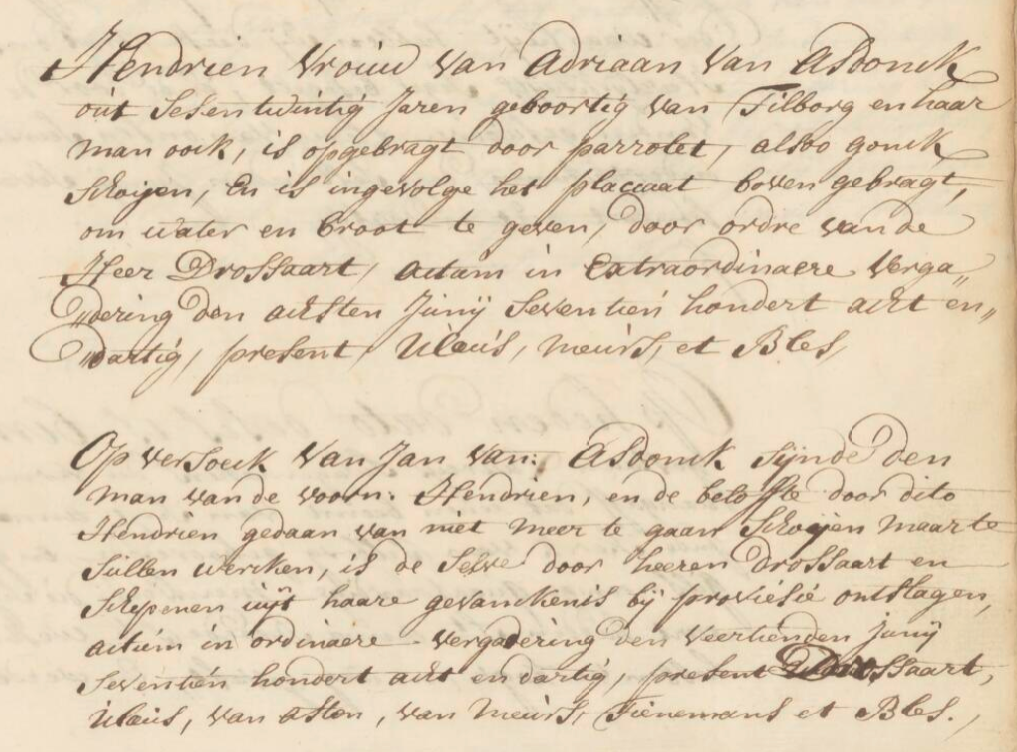 Hendrien vrouw van Adriaan van Asdonck
out sesentwintig Jaren geboortig van Tilborg en haar
man oock, is opgebragt door parrotet, alsoo gonck
schoijen, en is ingevolge het placcaat boven gebragt,
om water en broot te geven, door ordre van de
Heer Drossaart, actum in Extraordinaere verga„
„dering den achsten Junij seventien hondert acht en„
„dartig, present, Claus, meurs, et Bles,
Op versoeck van Jan van: Asdonck sijnde den
man van de voorn: Hendrien, en de belofte door dito
Hendrien gedaan van niet meer te gaan schoijen maar te
sullen wercken, is de selve door heeren Drossaart en
schepenen uijt haare gevanckenis bij provisie ontslagen,
actum in ordinaere vergadering den veertienden Junij
seventien hondert acht en dartig, present Drossaart,
van Asten, van meurs, Tienemans et Bles.,